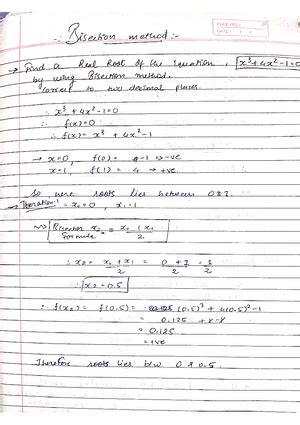 ∴ Bisection method :-
PAGE NO.:
DATE: / /
→ Find a Real Root of the equation, x³+4x²-1=0
by using Bisection method.
correct to two decimal places.
∴ x³ + 4x² -1=0
∴ f(x)=0
∴ f(x) = x³ + 4x²-1
→ x=0, f(0) = -1 → -ve
x=1, f(1) = 4 → +ve
So roots lies between 0 & 1.
→ Iteration-1 → x₀=0, x₁=1
Bisection Formula x₂ = x₀ + x₁ / 2
∴ x₂ = x₀ + x₁ / 2 = 0 + 1 / 2 = 1 / 2
x₂ = 0.5
∴ f(x₂) = f(0.5) = (0.5)³ + 4(0.5)² -1
= 0.125 + 1-1
= 0.125
= +ve
Therefore roots lies b/w 0 & 0.5.